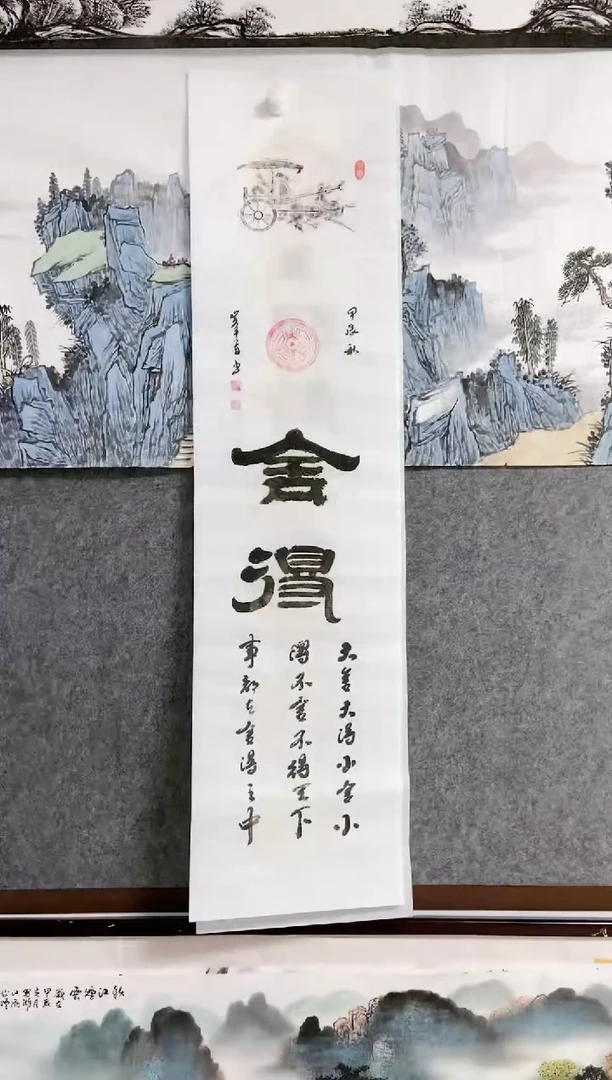 甲辰秋
舍
得
大舍大得小舍小
得不舍不得天下
事都在舍得之中
秋江烟雲